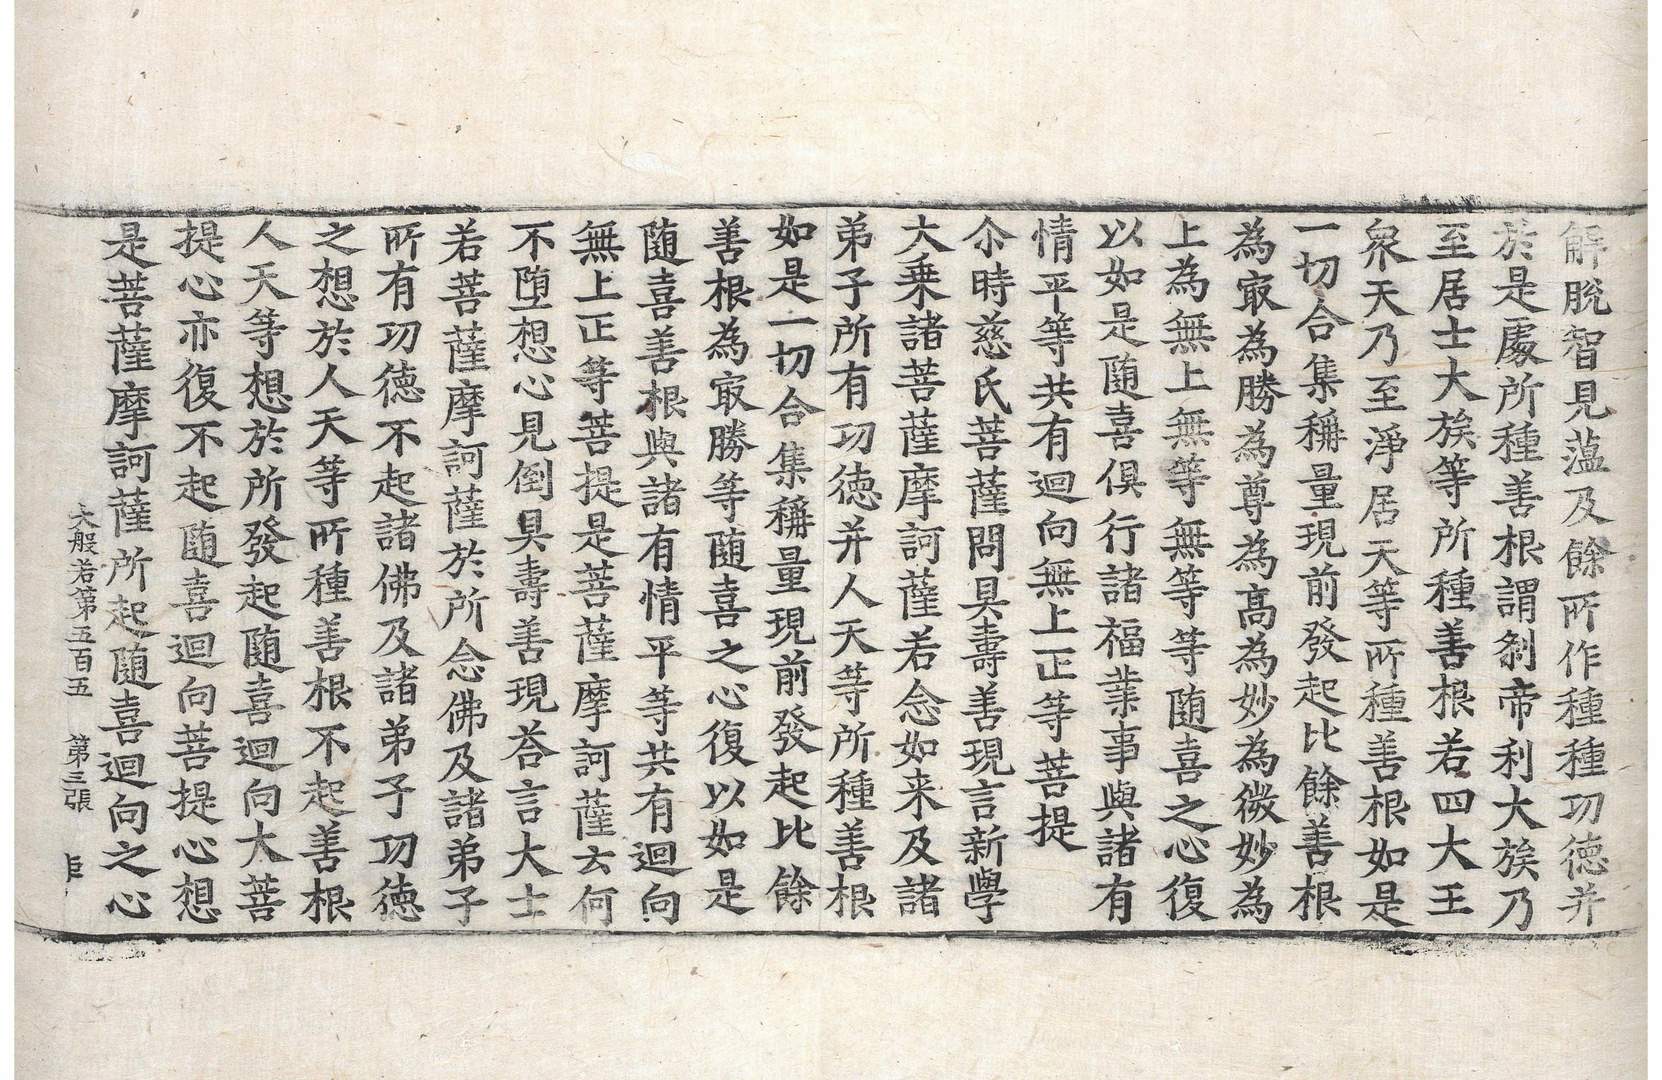 解脫智見蘊及餘所作種種功德并
於是處所種善根謂剎帝利大族乃
至居士大族等所種善根若四大王
衆天乃至淨居天等所種善根如是
一切合集稱量現前發起比餘善根
為㝡為勝為尊為高為妙為微妙為
上為無上無等無等等隨喜之心復
以如是隨喜俱行諸福業事與諸有
情平等共有迴向無上正等菩提
尒時慈氏菩薩問具壽善現言新學
大乗諸菩薩摩訶薩若念如来及諸
弟子所有功德并人天等所種善根
如是一切合集稱量現前發起比餘
善根為㝡勝等隨喜之心復以如是
隨喜善根與諸有情平等共有迴向
無上正等菩提是菩薩摩訶薩云何
不墮想心見倒具壽善現荅言大士
若菩薩摩訶薩於所念佛及諸弟子
所有功德不起諸佛及諸弟子功德
之想於人天等所種善根不起善根
人天等想於所發起隨喜迴向大菩
提心亦復不起隨喜迴向菩提心想
是菩薩摩訶薩所起隨喜迴向之心
大般若第五百五 第三張